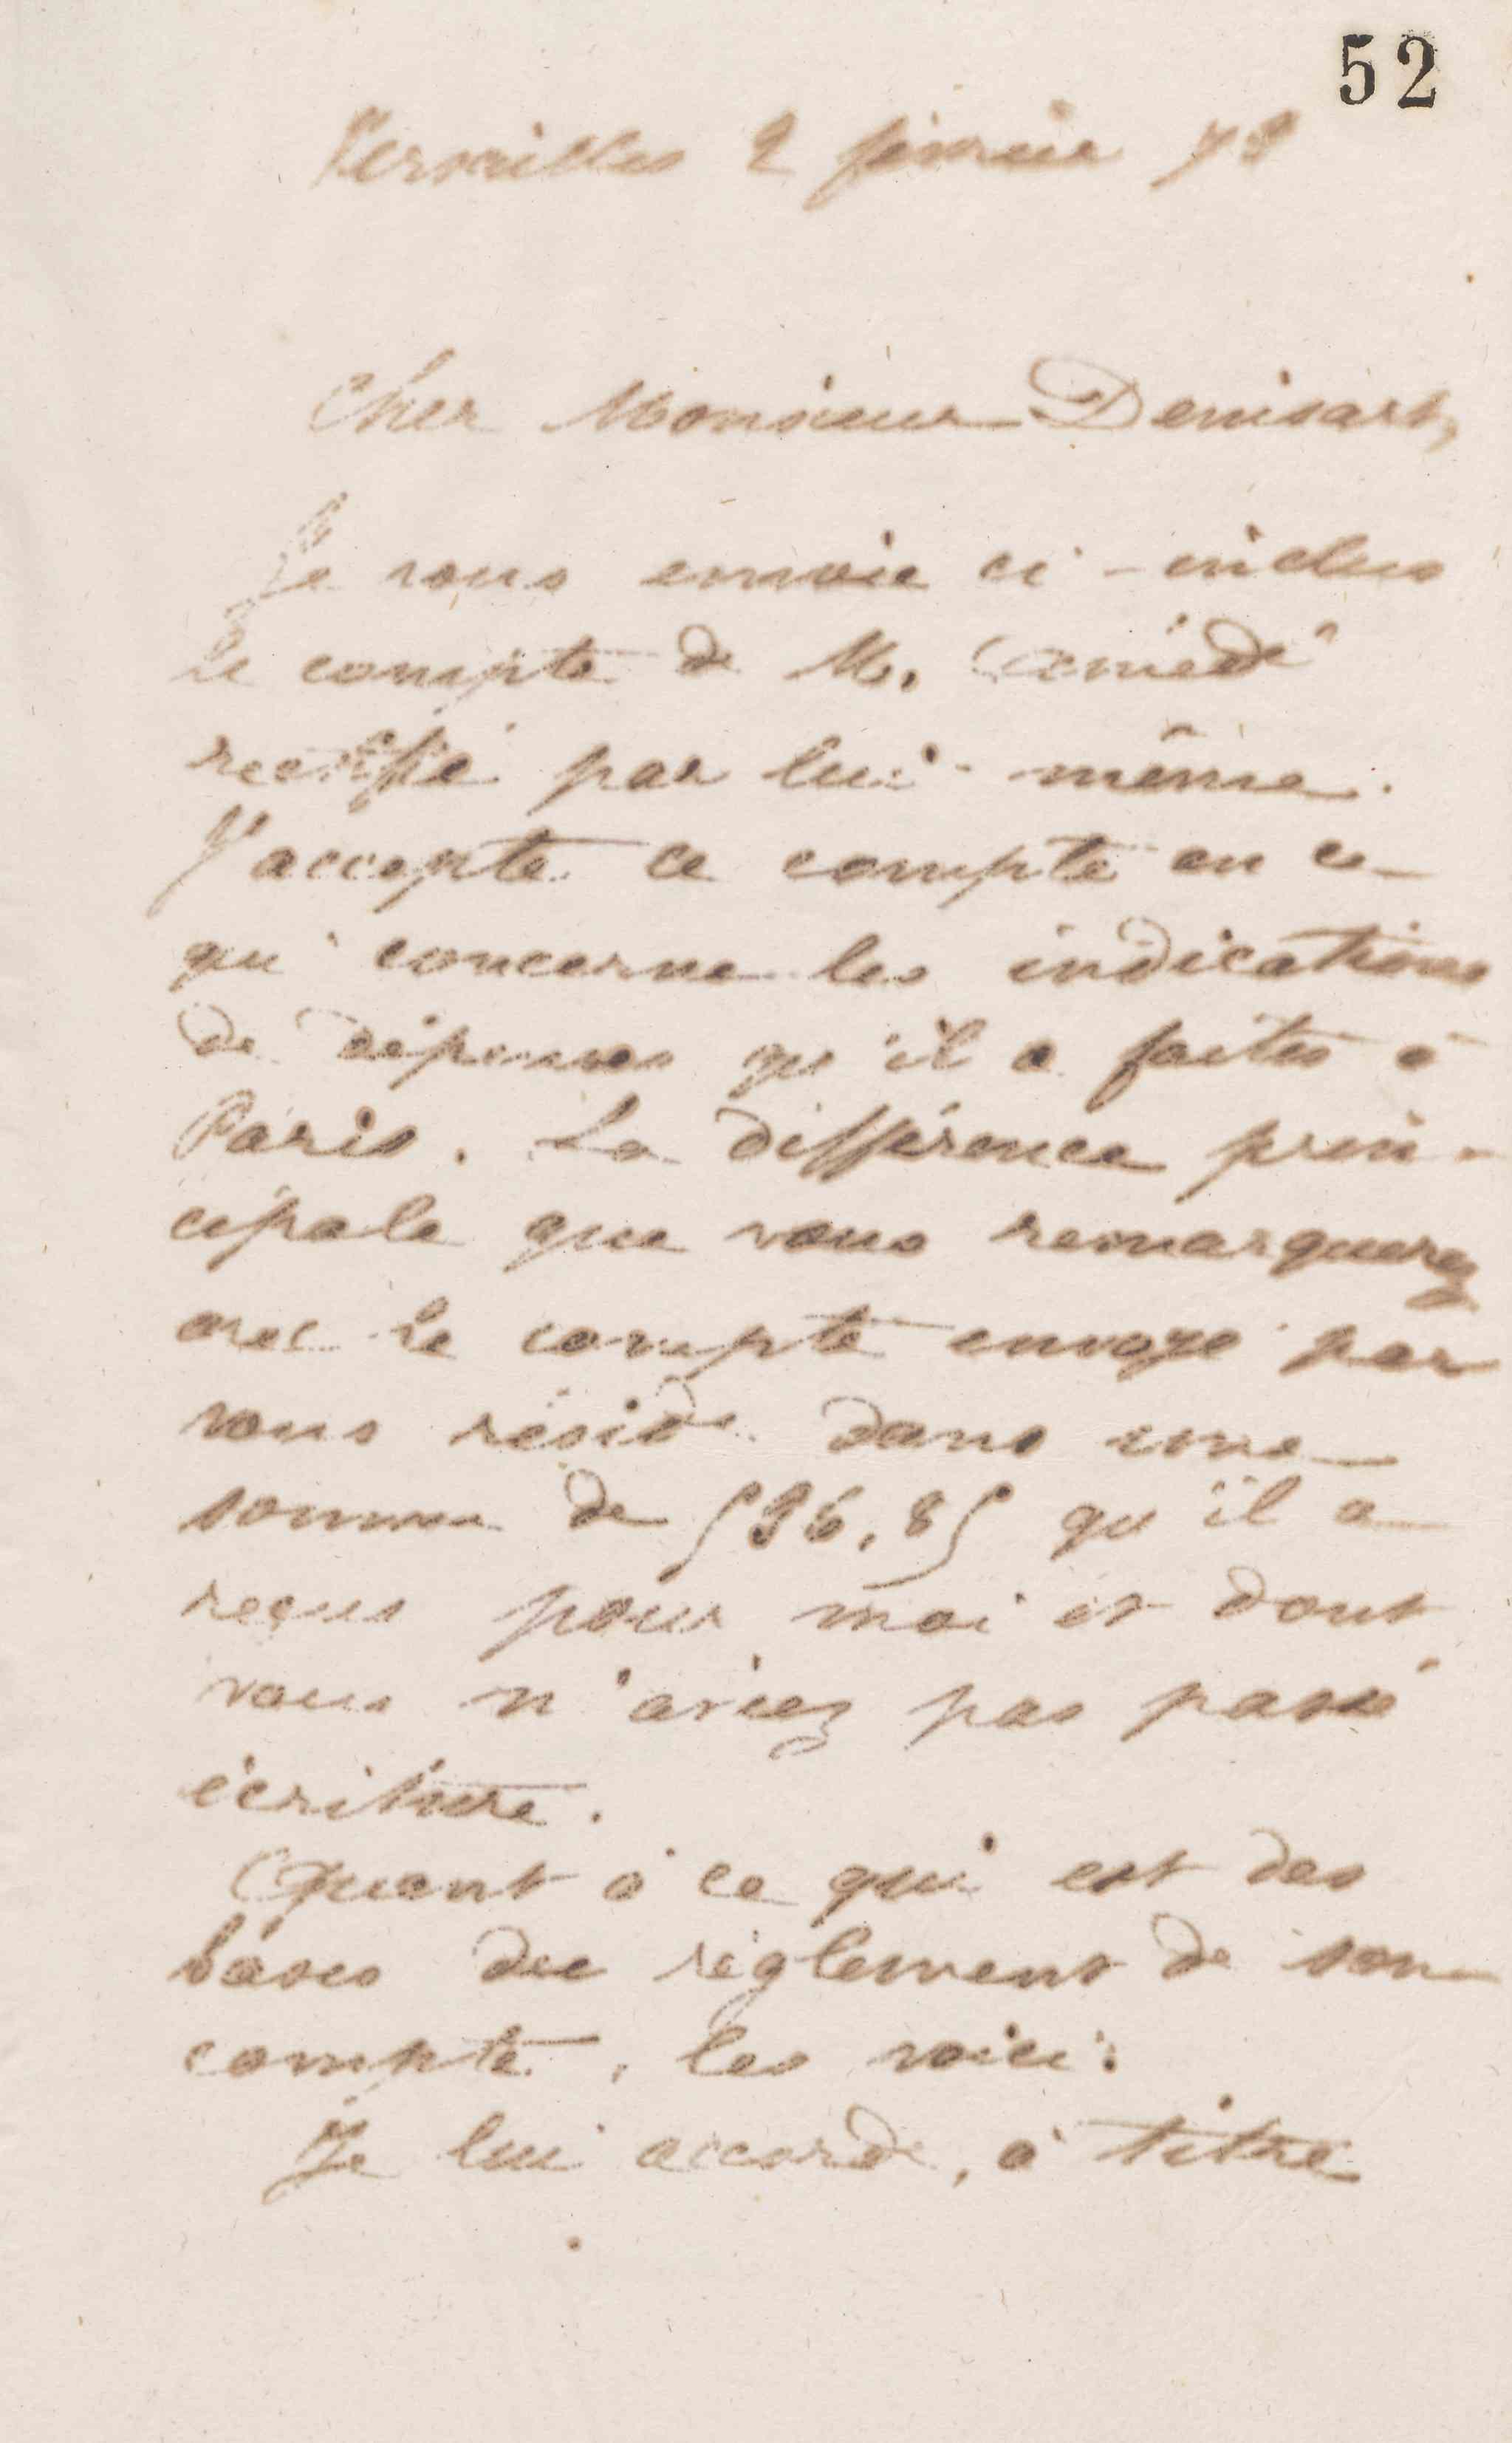 52
Versailles 2 février 79
Cher Monsieur Denisart,
Je vous envoie ci-inclus
le compte de M. Amédé
rectifié par lui-même.
J'accepte ce compte en ce
qui concerne les indications
de dépenses qu'il a faites à
Paris. La différence prin-
cipale que vous remarquerez
avec le compte envoyé par
vous réside dans une
somme de 596,85 qu'il a
reçus pour moi et dont
vous n'aviez pas passé
écriture.
Quant à ce qui est des
bases du règlement de son
compte, les voici:
Je lui accorde, à titre